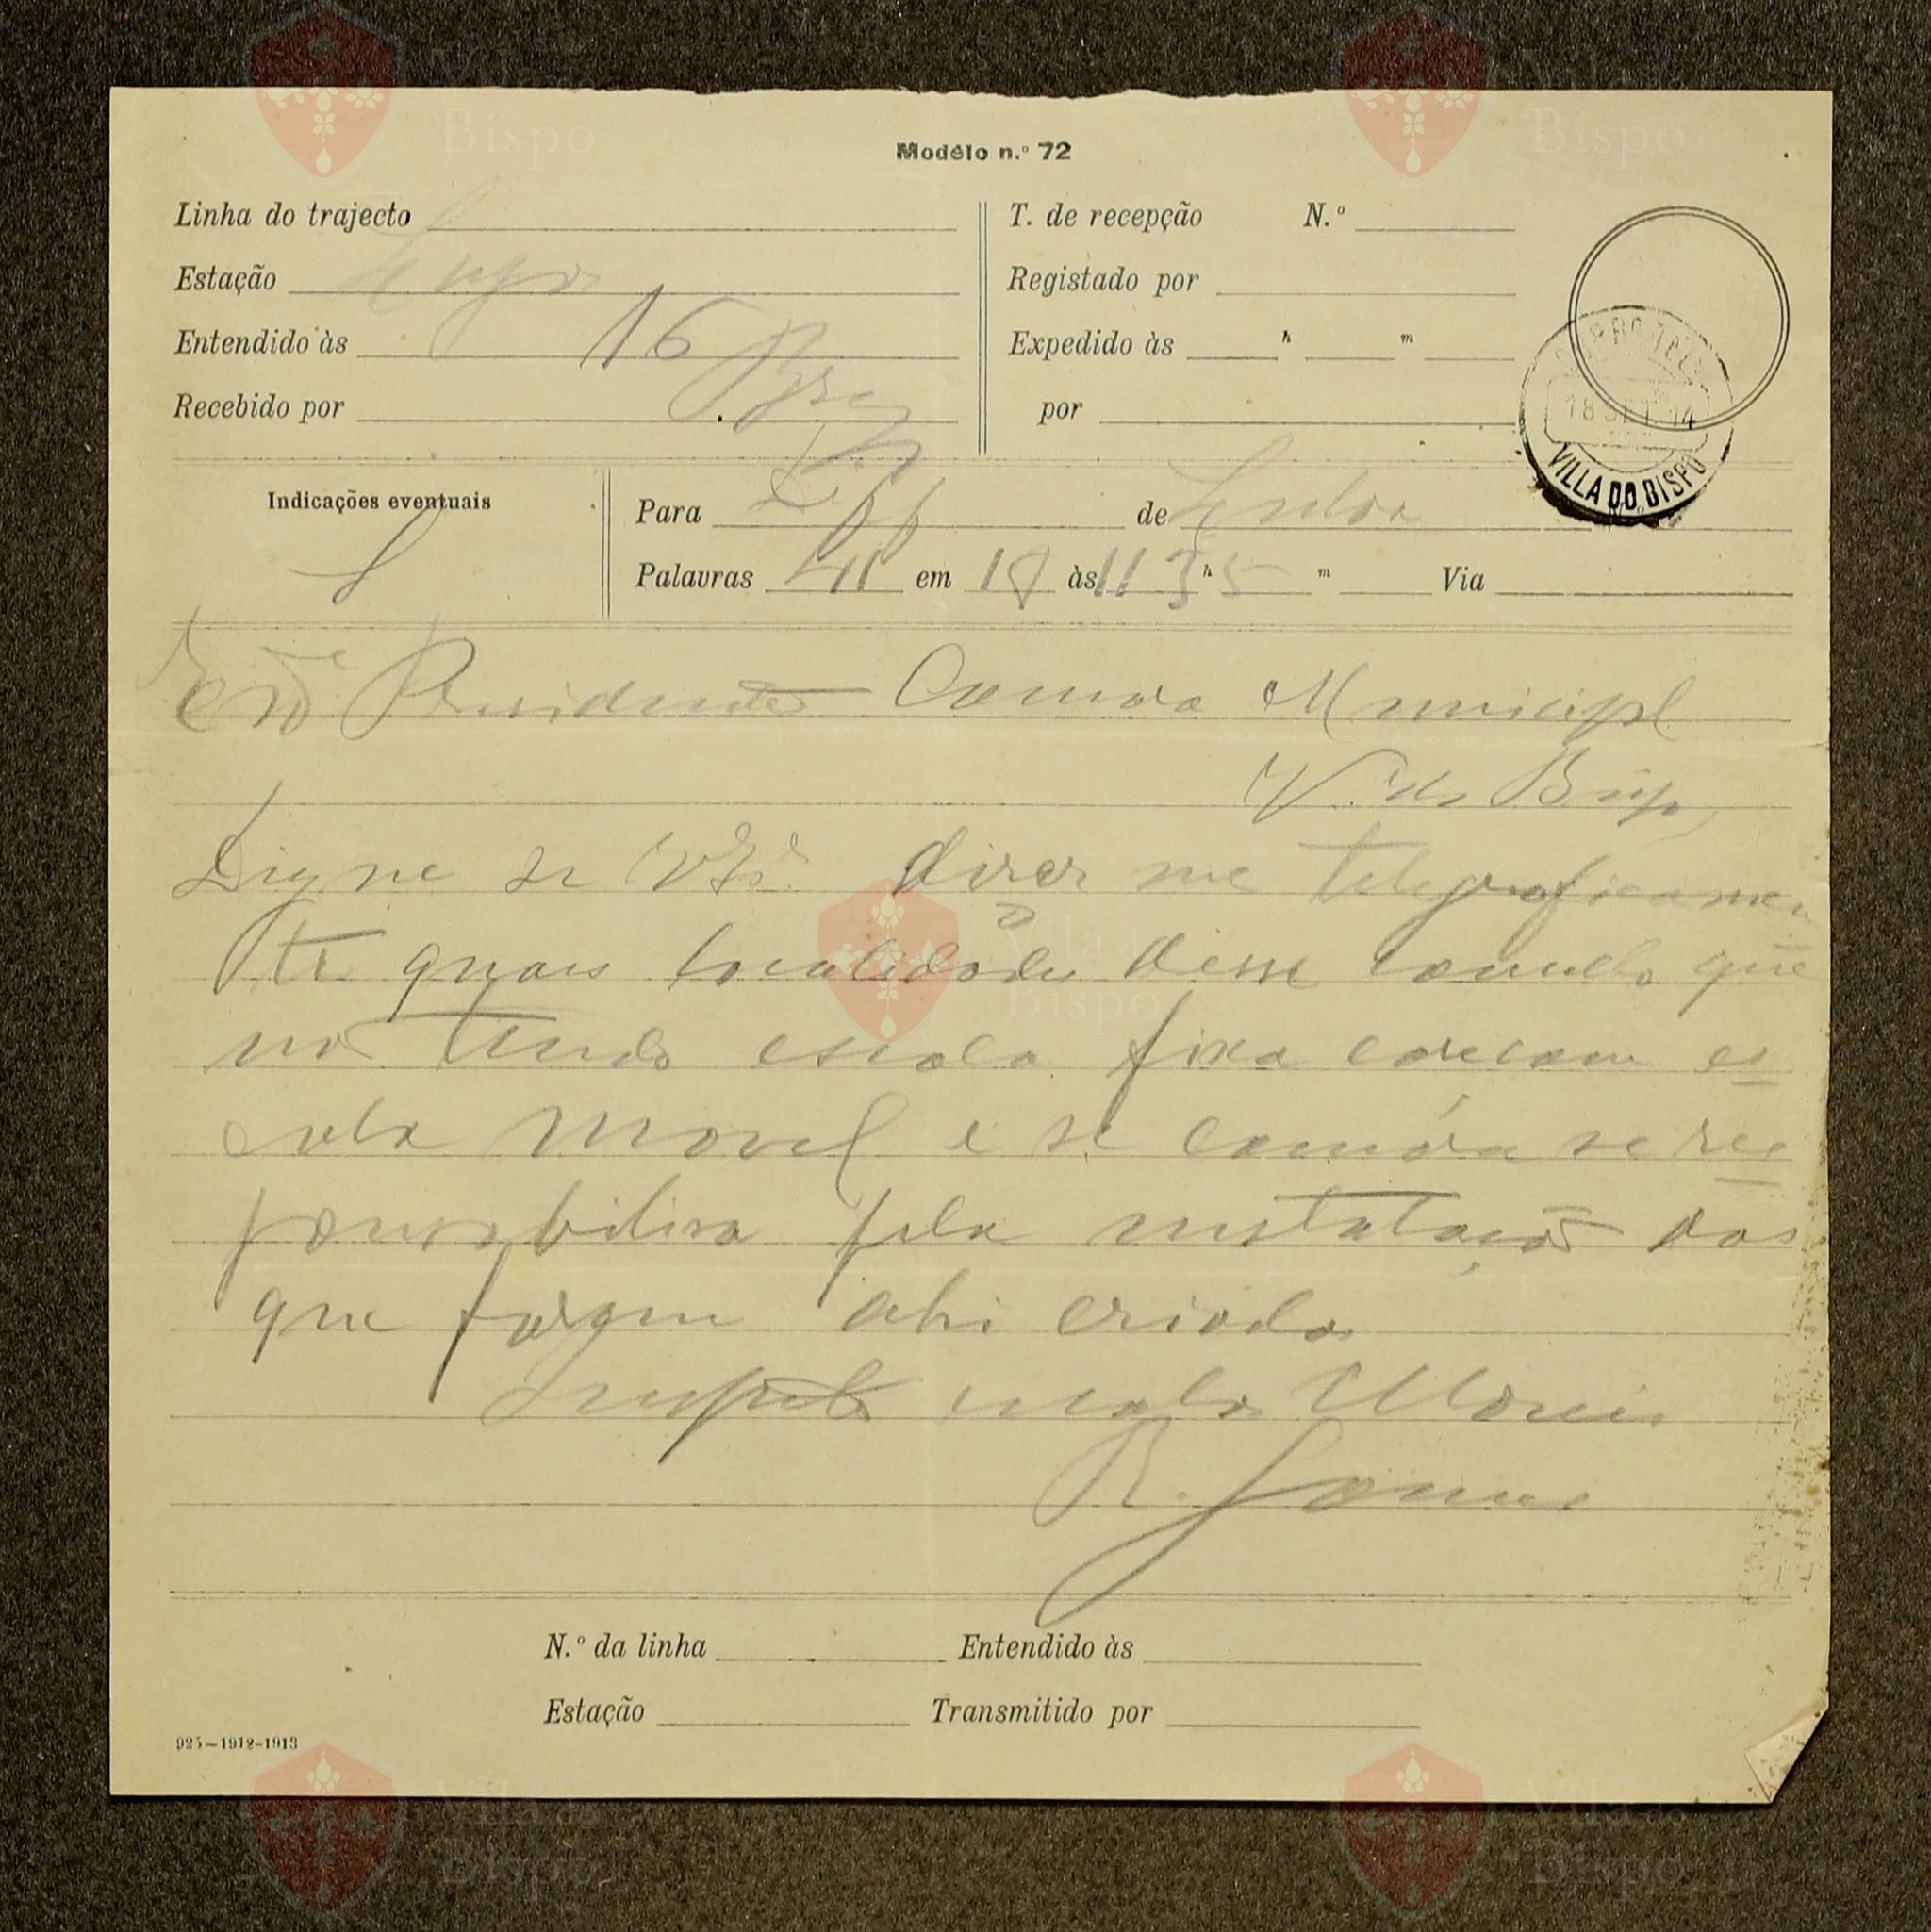 Modêlo n.º 72
Linha do trajecto
Estação Lagos
Entendido às 16
Recebido por
T. de recepção N.º
Registado por
Expedido às h m
por
18 SET 14
VILLA DO BISPO
Indicações eventuais
S
Para de Lisboa
Palavras 41 em 18 às 11 h 35 m Via
Exmo Presidente Camara Municipl
V. do Bispo
Digne se V Exa dizer me telegraficamen
te quais localidades desse concelho que
não tendo escola fixa carecam es
cola movel e se camára se res
ponsabilisa pela instalação das
que forem ahi criadas
Inspector escolas Moveis
R. Gomes
N.º da linha Entendido às
Estação Transmitido por
925—1912-1913
Vila do
Bispo